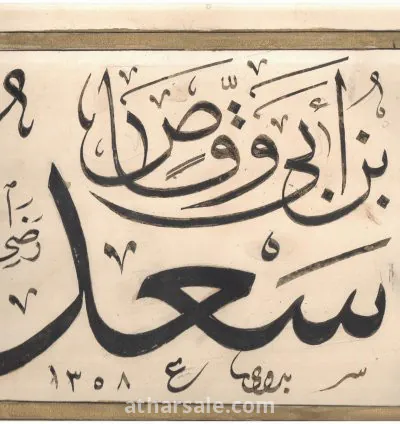 بن أبي وقاص
سعد
رضي
١٣٥٨
atharsale.com